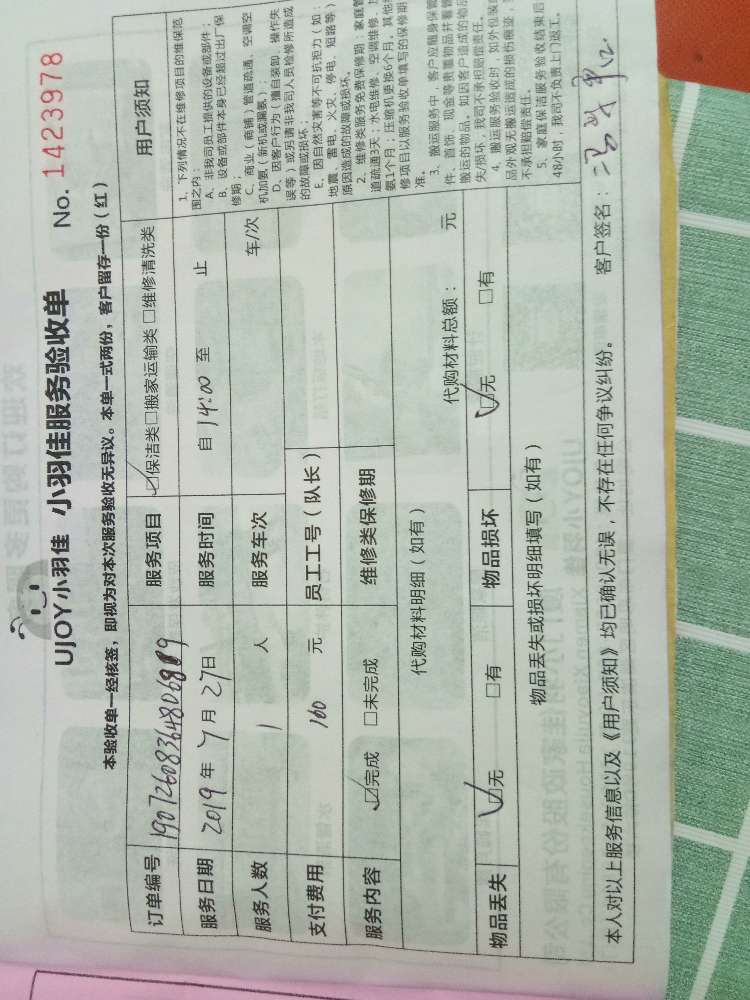 UJOY小羽佳 小羽佳服务验收单
No. 1423978
本验收单一经核签，即视为对本次服务验收无异议。本单一式两份，客户留存一份（红）
订单编号 服务项目 ☑保洁类□搬家运输类□维修清洗类
服务日期 2019年7月27日 服务时间 自14:00至 止
服务人数 1人 服务车次 车/次
支付费用 160元 员工工号（队长）
服务内容 ☑完成 □未完成 维修类保修期
代购材料明细（如有） 代购材料总额： 元
物品丢失 ☑无 □有 物品损坏 ☑无 □有
物品丢失或损坏明细填写（如有）
用户须知
1、下列情况不在维修项目的维保范
围之内：
A、非我司员工提供的设备或部件；
B、设备或部件本身已经超过出厂保
修期；
C、商业（商铺）管道疏通、空调空
机加氨（新机或漏氨）；
D、因客户行为（擅自装卸、操作失
误等）或另请非我司人员检修所造成
的故障或损坏；
E、因自然灾害等不可抗拒力（如：
地震、雷电、火灾、停电、短路等）
原因造成的故障或损坏。
2、维修类服务免费保修期：家庭管
道疏通3天；水电维修、空调维修、
氨1个月；压缩机更换6个月。其他
修项目以服务验收单填写的保修期
准。
3、搬运服务中，客户应随身保管
件、首饰、现金等贵重物品并看管
搬运的物品。如因客户造成的物品
失/损坏，我司不承担赔偿责任。
4、搬运服务验收时，如外包装
品外观无搬运造成的损伤痕迹，
不承担赔偿责任。
5、家庭保洁服务验收结束后
48小时，我司不负责上门返工。
本人对以上服务信息以及《用户须知》均已确认无误，不存在任何争议纠纷。 客户签名：